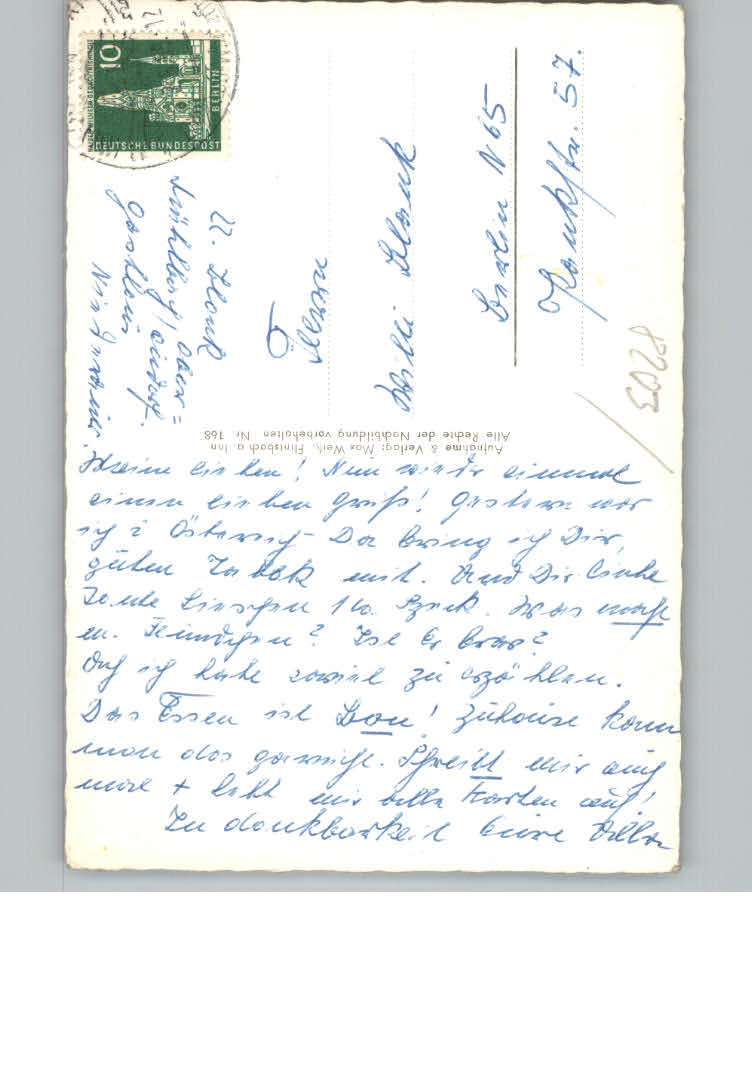 10
BERLIN
DEUTSCHE BUNDESPOST
Blank
Mühlberg / Ober=
audorf.
Gasthaus
Herrn
Willi Blank
Berlin N 65
Pankstr. 57.
Aufnahme & Verlag: Max Weiß, Flintsbach a. Inn
Alle Rechte der Nachbildung vorbehalten Nr. 168
Meine Lieben! Nun wieder einmal
einen lieben Gruß! Gestern war
ich i Österreich – Da bring ich Dir,
guten Tabak mit. Und Dir liebe
Tante Lieschen Speck. Was macht
Ist Er brav?
Ach ich habe soviel zu erzählen.
Das Essen ist Bon! Zuhause kann
man das garnicht. Schreibt mir auch
mal + hebt mir alle Karten auf!
In Dankbarkeit Eure